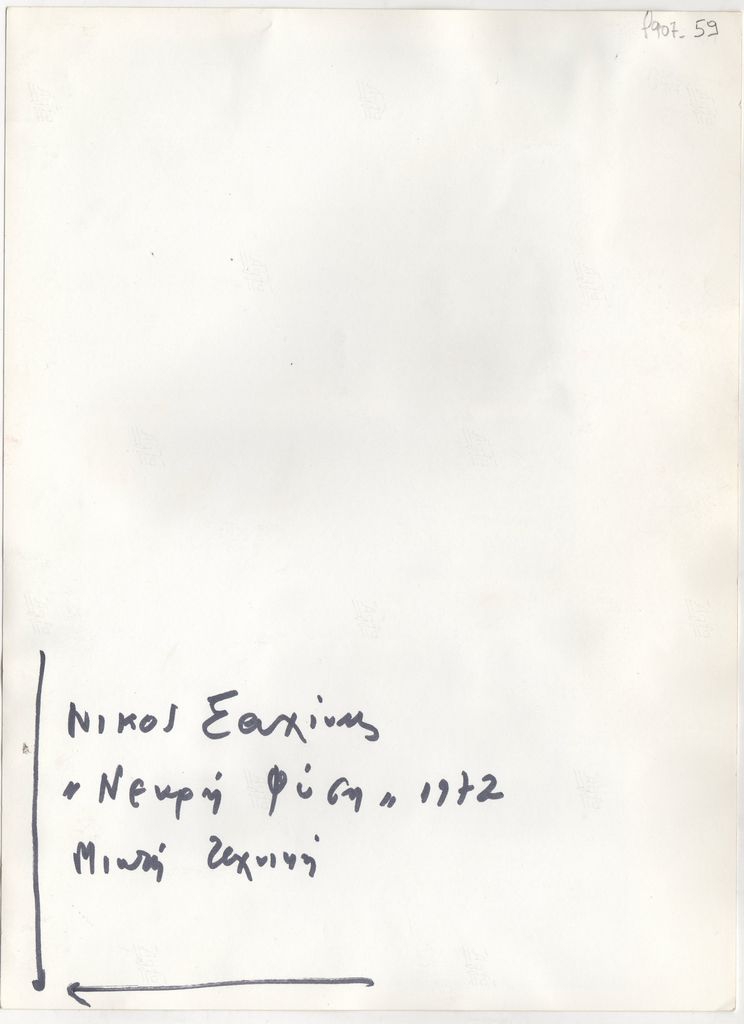 φ907-59
ΝΙΚΟΣ Σαχίνης
"Νεκρή Φύση" 1972
Μικτή τεχνική